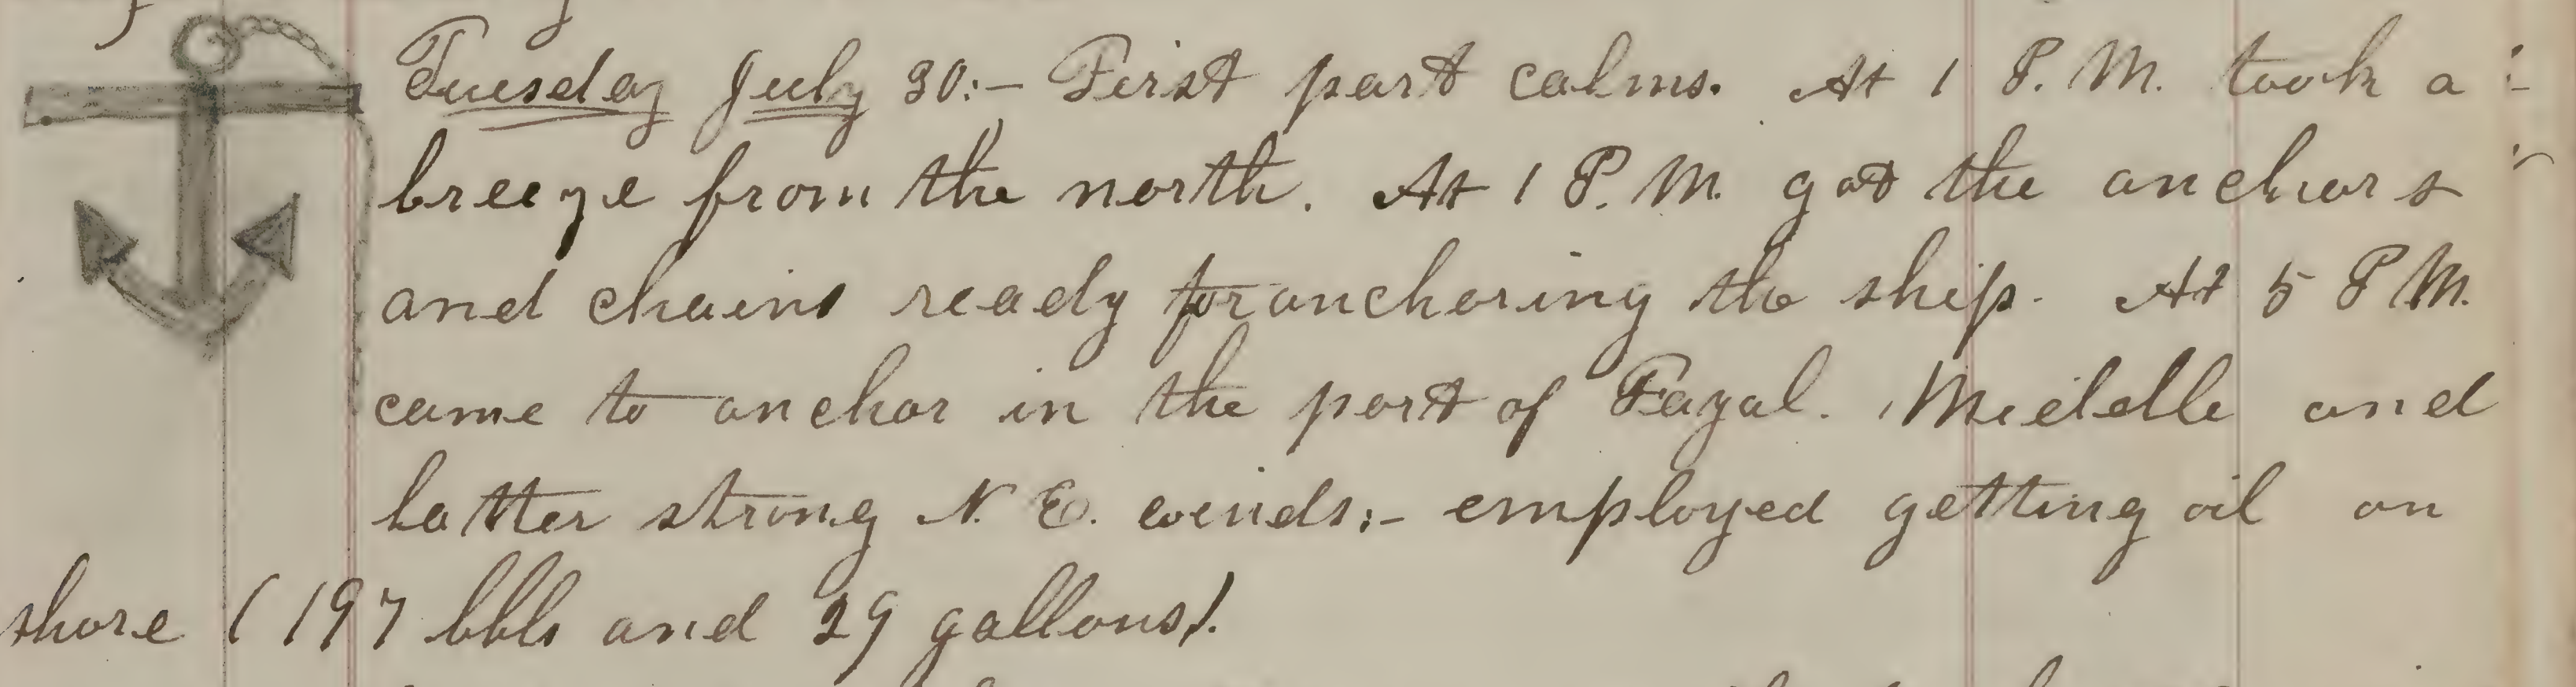 Tuesday July 30:- First part calms. At 1 P. M. took a
breeze from the north. At 1 P. M. got the anchors
and chains ready for anchoring the ship. At 5 P M.
came to anchor in the port of Fayal. Middle and
latter strong N. E. winds:- employed getting oil on
shore (197 bbls and 29 gallons).